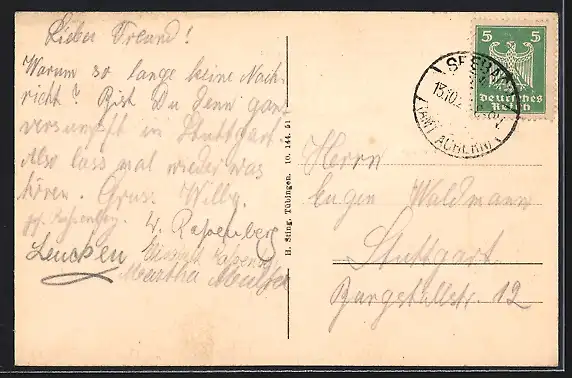 Lieber Freund!
Warum so lange keine Nach-
richt? Bist Du denn ganz
versumpft in Stuttgart.
Also lass mal wieder was
hören. Gruss Willy.
W. Rapenberg
Leucken
Martha
H. Sting, Tübingen. 10. 144. 51
5 5
Deutsches
Reich
SEEBACH
13.10.2
(AMT ACHERN)
Herrn
Eugen Waldmann
Stuttgart
Burgstallstr. 12